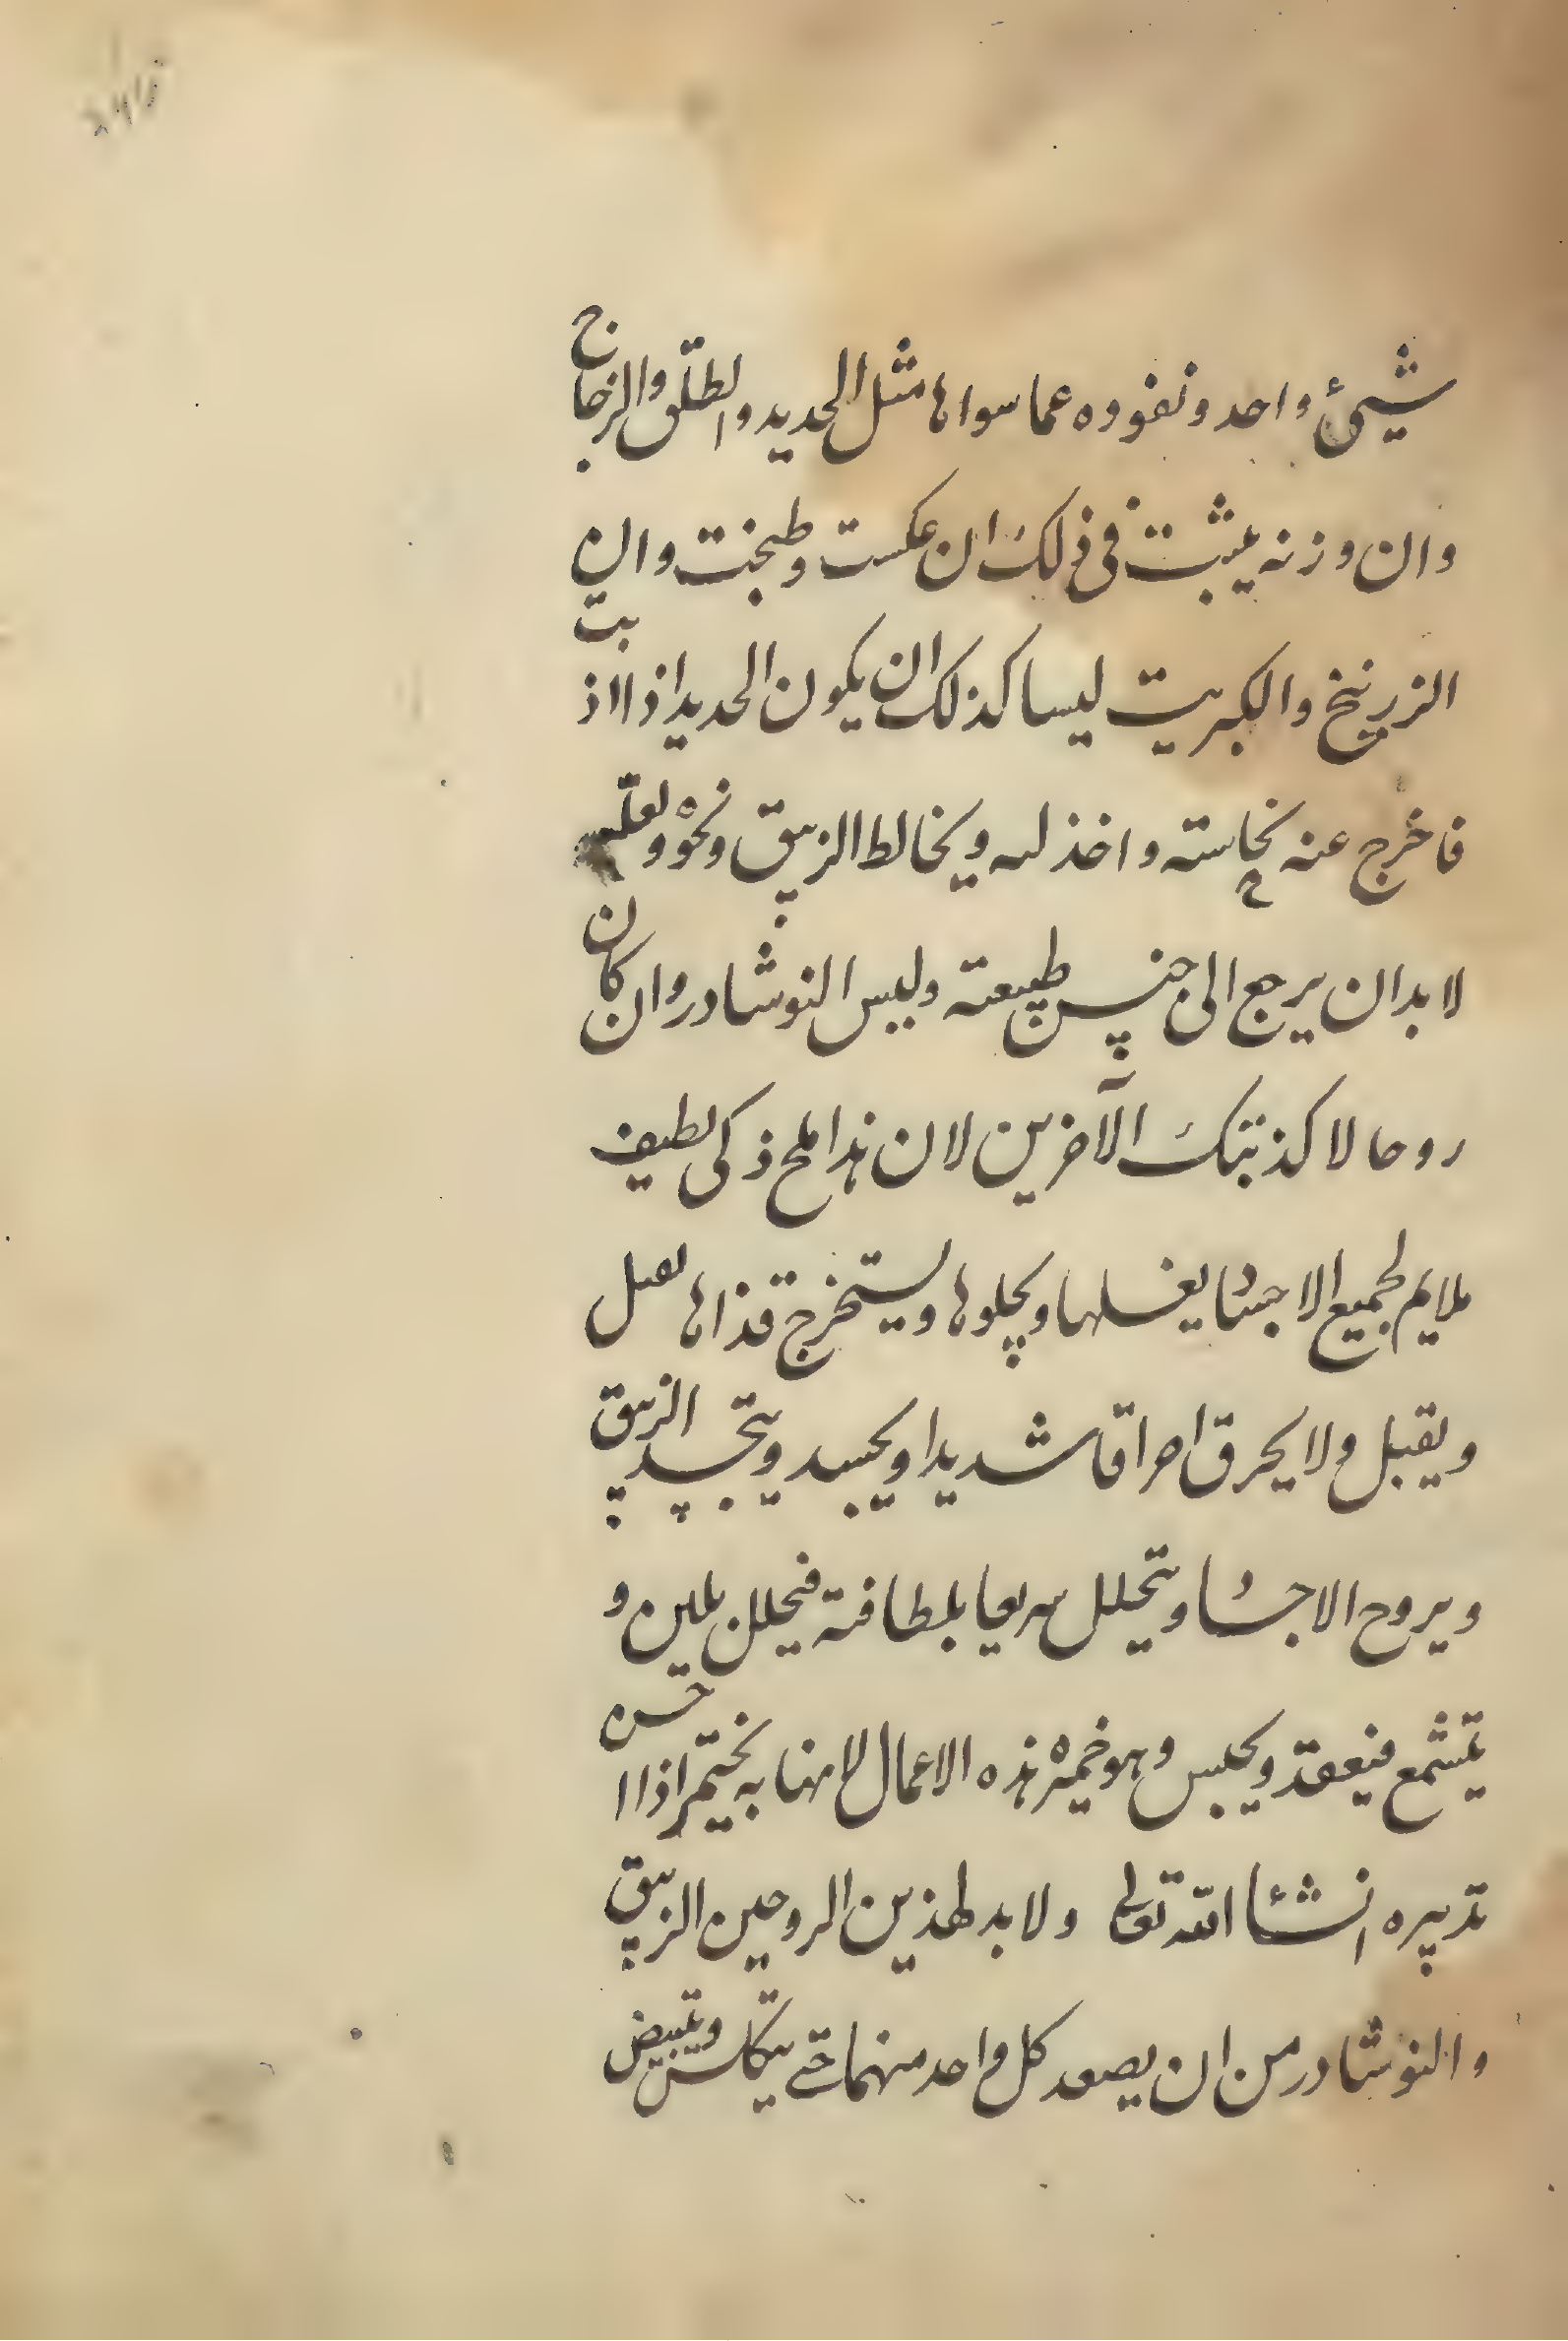 شيئ واحد ونفوده عما سواها مثل الحديد والطلق والزجاج
وان وزنه يثبت في ذلك ان عكست وطبخت وان
الزرنيخ والكبريت ليسا كذلك ان يكون الحديد اذا اذيبت
فاخرج عنه نجاسته واخذ لبه ويخالط الزيبق ونحوه
لابد ان يرجع الى جنس طبيعته وليس النوشادر وان كان
روحا لا كذينك الآخرين لان هذا ملح ذكى لطيف
ملايم لجميع الاجساد يغسلها ويجلوها ويستخرج قذاها
ويقبل ولا يحرق احراقا شديدا ويجسد ويتجسد الزيبق
ويروح الاجساد ويتحلل سريعا بلطافته فيحلل يلين و
يتشمع فينعقد ويحبس وهو خميرة هذه الاعمال لانها به يختمر اذا احسن
تدبيره انشأ الله تعالى ولابد لهذين الروحين الزيبق
والنوشادر من ان يصعد كل واحد منهما حتى يتكلس ويتبيض